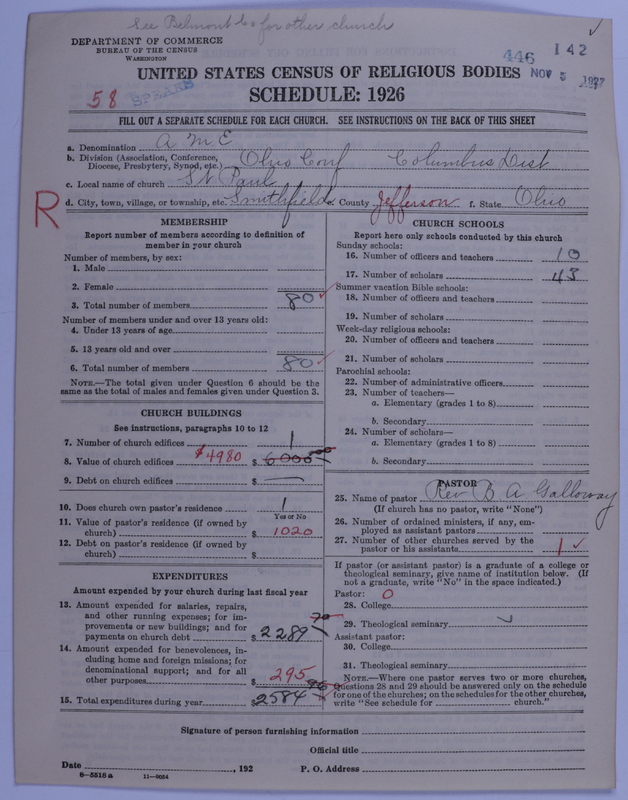 See Belmont Co for other church
DEPARTMENT OF COMMERCE
BUREAU OF THE CENSUS
WASHINGTON
446 142
NOV 5 1927
UNITED STATES CENSUS OF RELIGIOUS BODIES
58 SPEARS
SCHEDULE: 1926
FILL OUT A SEPARATE SCHEDULE FOR EACH CHURCH. SEE INSTRUCTIONS ON THE BACK OF THIS SHEET
a. Denomination A M E
b. Division (Association, Conference, Diocese, Presbytery, Synod, etc.) Ohio Conf Columbus Dist
c. Local name of church St Paul
R
d. City, town, village, or township, etc. Smithfield e. County Jefferson f. State Ohio
MEMBERSHIP
Report number of members according to definition of
member in your church
Number of members, by sex:
1. Male
2. Female
3. Total number of members 80 ✓
Number of members under and over 13 years old:
4. Under 13 years of age
5. 13 years old and over
6. Total number of members 80 ✓
NOTE.—The total given under Question 6 should be the
same as the total of males and females given under Question 3.
CHURCH BUILDINGS
See instructions, paragraphs 10 to 12
7. Number of church edifices 1
8. Value of church edifices $4980 $ 6000
9. Debt on church edifices $ —
10. Does church own pastor's residence 1
Yes or No
11. Value of pastor's residence (if owned by
church) $ 1020
12. Debt on pastor's residence (if owned by
church) $
EXPENDITURES
Amount expended by your church during last fiscal year
13. Amount expended for salaries, repairs,
and other running expenses; for im-
provements or new buildings; and for
payments on church debt $ 2289
14. Amount expended for benevolences, in-
cluding home and foreign missions; for
denominational support; and for all
other purposes $ 295
15. Total expenditures during year $ 2584
CHURCH SCHOOLS
Report here only schools conducted by this church
Sunday schools:
16. Number of officers and teachers 10
17. Number of scholars 43
Summer vacation Bible schools:
18. Number of officers and teachers
19. Number of scholars
Week-day religious schools:
20. Number of officers and teachers
21. Number of scholars
Parochial schools:
22. Number of administrative officers
23. Number of teachers—
a. Elementary (grades 1 to 8)
b. Secondary
24. Number of scholars—
a. Elementary (grades 1 to 8)
b. Secondary
PASTOR
25. Name of pastor Rev B A Galloway
(If church has no pastor, write "None")
26. Number of ordained ministers, if any, em-
ployed as assistant pastors
27. Number of other churches served by the
pastor or his assistants 1 ✓
If pastor (or assistant pastor) is a graduate of a college or
theological seminary, give name of institution below. (If
not a graduate, write "No" in the space indicated.)
Pastor: 0
28. College
29. Theological seminary
Assistant pastor:
30. College
31. Theological seminary
NOTE.—Where one pastor serves two or more churches,
Questions 28 and 29 should be answered only on the schedule
for one of the churches; on the schedules for the other churches,
write "See schedule for church."
Signature of person furnishing information
Official title
Date , 192 P. O. Address
6-5518a 11-9024